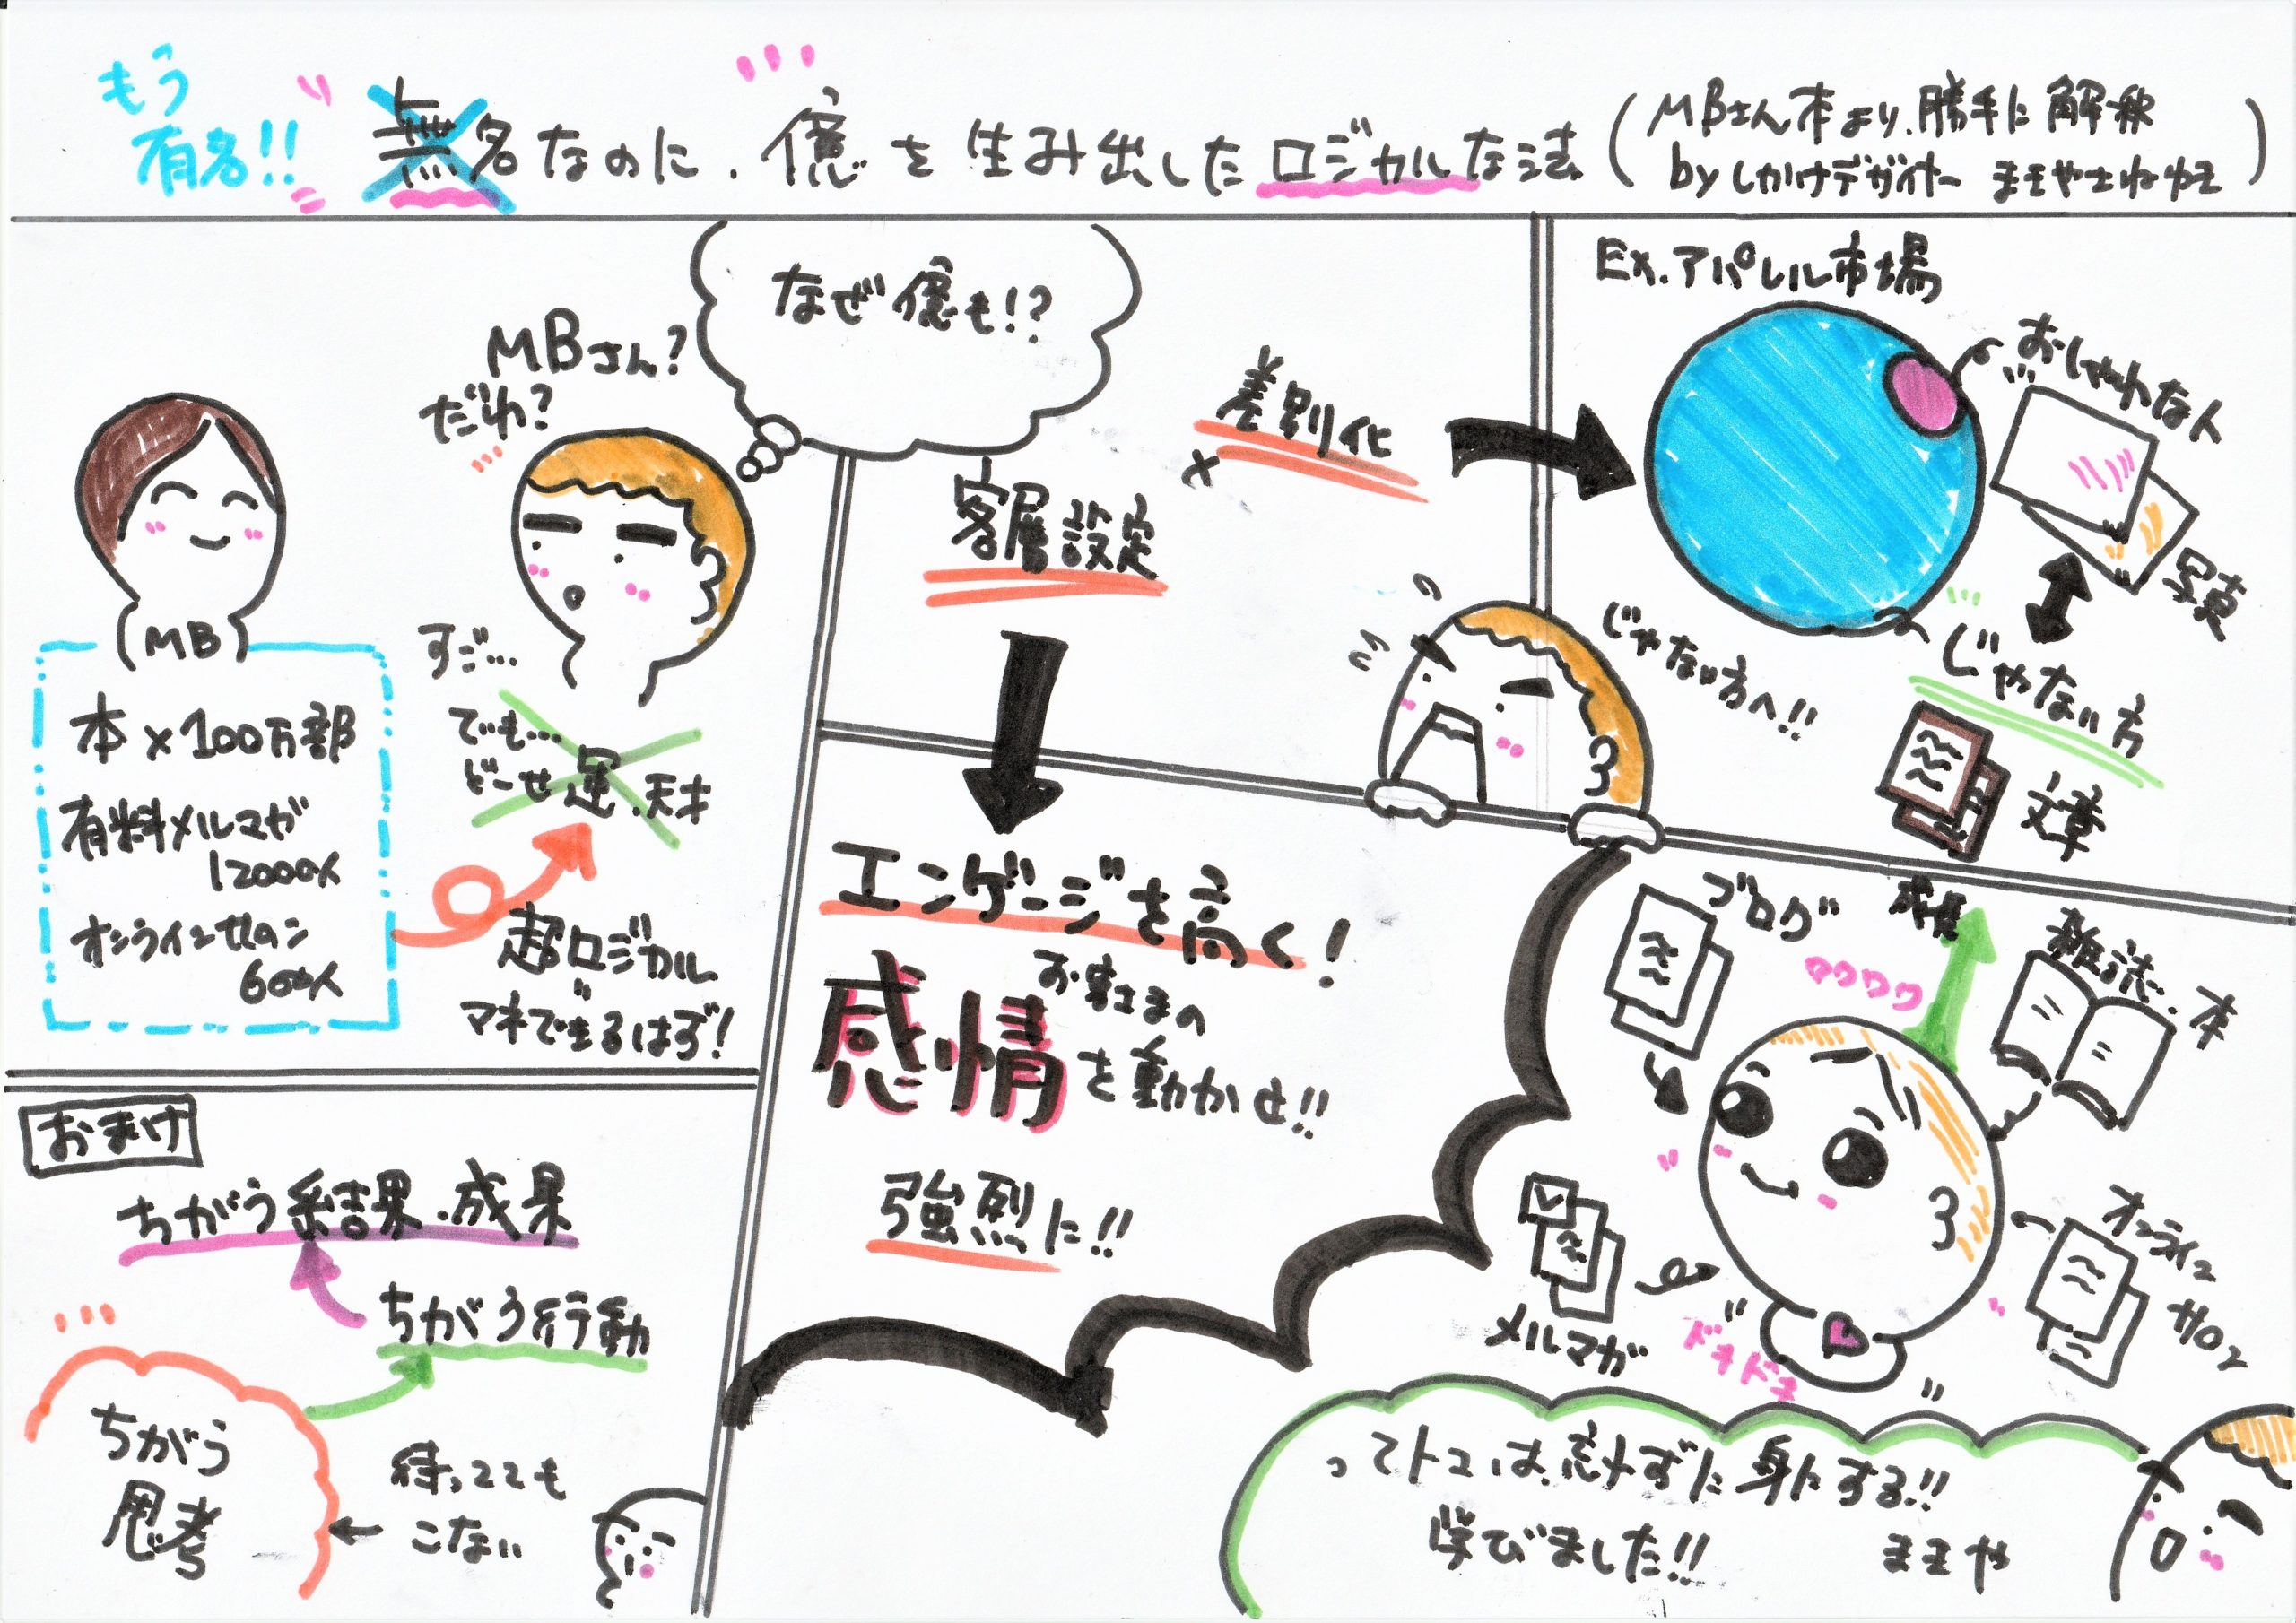 もう
有名!!
無名なのに、億を生み出したロジカルな法
(MBさん本より、勝手に解釈
byしかけデザイナー
なぜ億も!?
MBさん?
だれ?
(MB)
本×100万部
有料メルマガ
12000人
オンラインサロン
600人
すご…
でも…
どーせ運、天才
超ロジカル
マネできるはず!
客層設定
×
差別化
Ex.アパレル市場
おしゃれな人
写真
じゃない方
文章
じゃない方へ!!
エンゲージを高く!
お客さまの
感情を動かせ!!
強烈に!!
ブログ
成長
ワクワク
雑誌・本
メルマガ
ドキドキ
オンライン
サロン
おまけ
ちがう結果、成果
ちがう行動
ちがう
思考
待ってても
こない
学びました!!